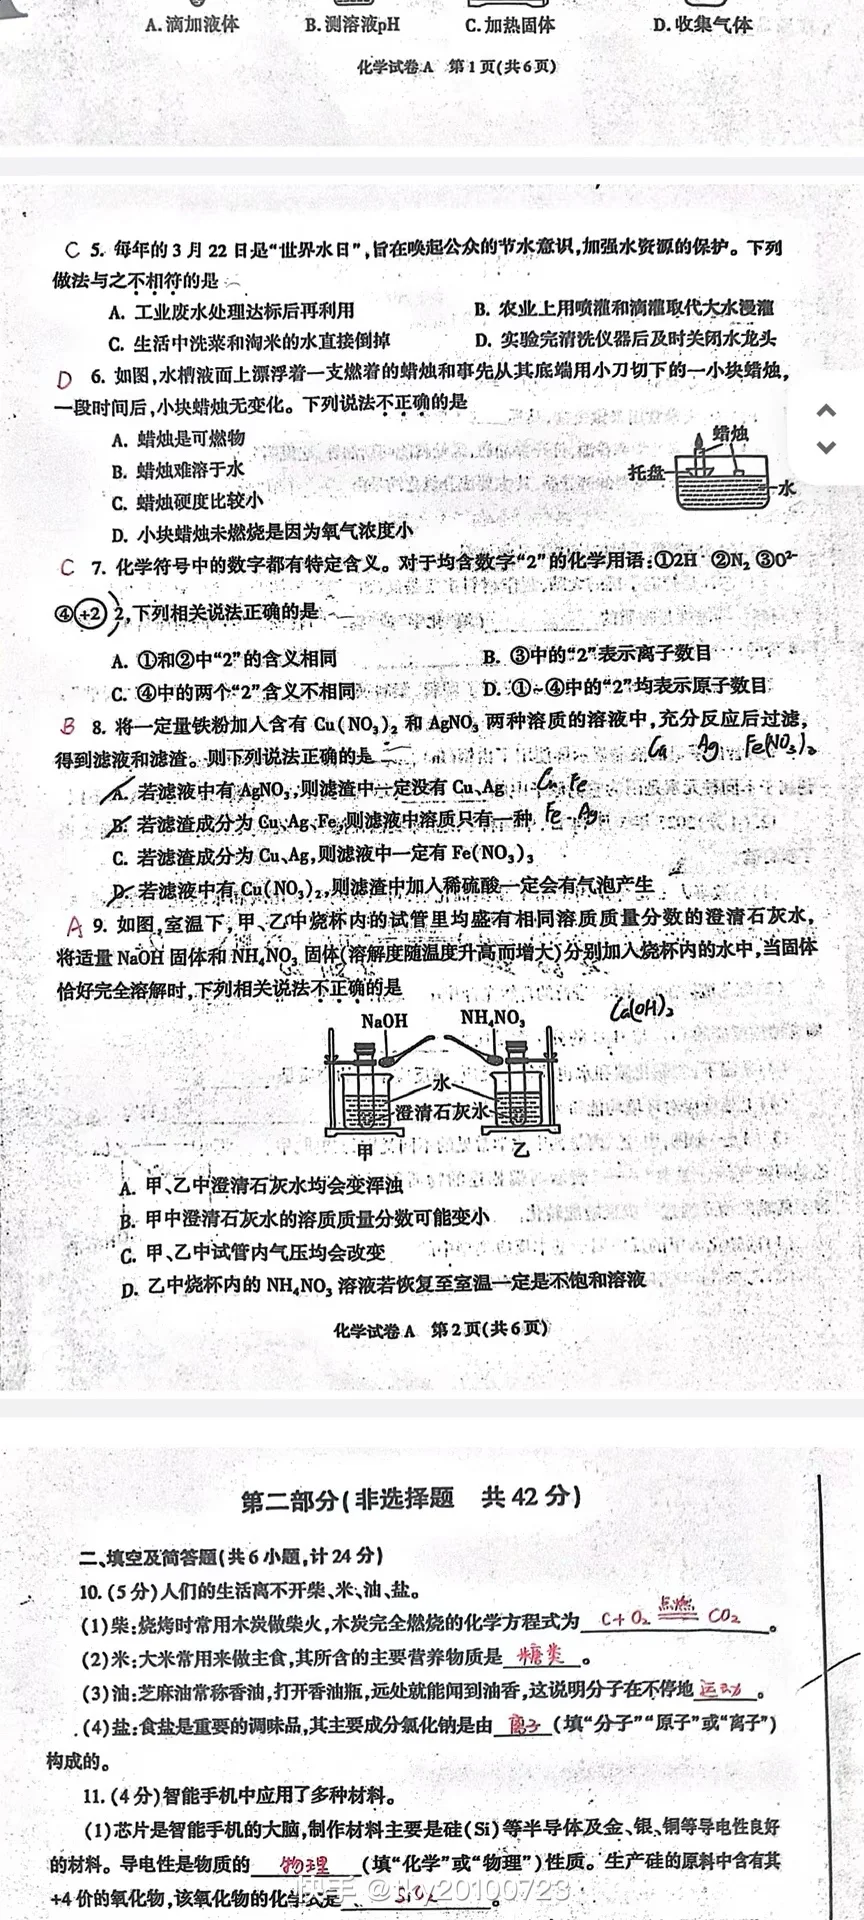 A.滴加液体 B.测溶液pH C.加热固体 D.收集气体
化学试卷A 第1页(共6页)
C 5. 每年的3月22日是“世界水日”,旨在唤起公众的节水意识,加强水资源的保护。下列
做法与之不相符的是
A. 工业废水处理达标后再利用 B. 农业上用喷灌和滴灌取代大水漫灌
C. 生活中洗菜和淘米的水直接倒掉 D. 实验完清洗仪器后及时关闭水龙头
D 6. 如图,水槽液面上漂浮着一支燃着的蜡烛和事先从其底端用小刀切下的一小块蜡烛,
一段时间后,小块蜡烛无变化。下列说法不正确的是
A. 蜡烛是可燃物
B. 蜡烛难溶于水
C. 蜡烛硬度比较小
D. 小块蜡烛未燃烧是因为氧气浓度小
蜡烛
托盘
水
C 7. 化学符号中的数字都有特定含义。对于均含数字“2”的化学用语:①2H ②N₂ ③O²⁻
④+2 2,下列相关说法正确的是
A. ①和②中“2”的含义相同 B. ③中的“2”表示离子数目
C. ④中的两个“2”含义不相同 D. ①~④中的“2”均表示原子数目
B 8. 将一定量铁粉加入含有 Cu(NO₃)₂ 和 AgNO₃ 两种溶质的溶液中,充分反应后过滤,
得到滤液和滤渣。则下列说法正确的是
Cu Ag Fe(NO₃)₂
A. 若滤液中有 AgNO₃,则滤渣中一定没有 Cu、Ag Cu Fe
B. 若滤渣成分为 Cu、Ag、Fe,则滤液中溶质只有一种 Fe Ag
C. 若滤渣成分为 Cu、Ag,则滤液中一定有 Fe(NO₃)₃
D. 若滤液中有 Cu(NO₃)₂,则滤渣中加入稀硫酸一定会有气泡产生
A 9. 如图,室温下,甲、乙中烧杯内的试管里均盛有相同溶质质量分数的澄清石灰水,
将适量 NaOH 固体和 NH₄NO₃ 固体(溶解度随温度升高而增大)分别加入烧杯内的水中,当固体
恰好完全溶解时,下列相关说法不正确的是
Ca(OH)₂
NaOH NH₄NO₃
水
澄清石灰水
甲 乙
A. 甲、乙中澄清石灰水均会变浑浊
B. 甲中澄清石灰水的溶质质量分数可能变小
C. 甲、乙中试管内气压均会改变
D. 乙中烧杯内的 NH₄NO₃ 溶液若恢复至室温一定是不饱和溶液
化学试卷A 第2页(共6页)
第二部分(非选择题 共42分)
二、填空及简答题(共6小题,计24分)
10. (5分)人们的生活离不开柴、米、油、盐。
(1)柴:烧烤时常用木炭做柴火,木炭完全燃烧的化学方程式为 C+O₂ 点燃 CO₂ 。
(2)米:大米常用来做主食,其所含的主要营养物质是 糖类 。
(3)油:芝麻油常称香油,打开香油瓶,远处就能闻到油香,这说明分子在不停地 运动 。
(4)盐:食盐是重要的调味品,其主要成分氯化钠是由 离子 (填“分子”“原子”或“离子”)
构成的。
11. (4分)智能手机中应用了多种材料。
(1)芯片是智能手机的大脑,制作材料主要是硅(Si)等半导体及金、银、铜等导电性良好
的材料。导电性是物质的 物理 (填“化学”或“物理”)性质。生产硅的原料中含有其
+4价的氧化物,该氧化物的化学式是 SiO₂ 。